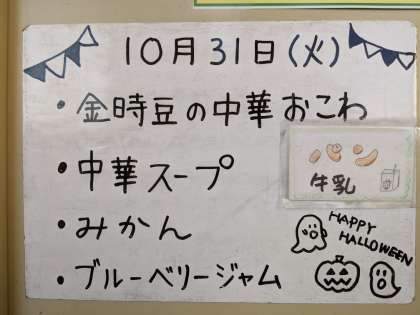 10月31日(火)
・金時豆の中華おこわ
・中華スープ
牛乳
・みかん
・ブルーベリージャム
HAPPY
HALLOWEEN